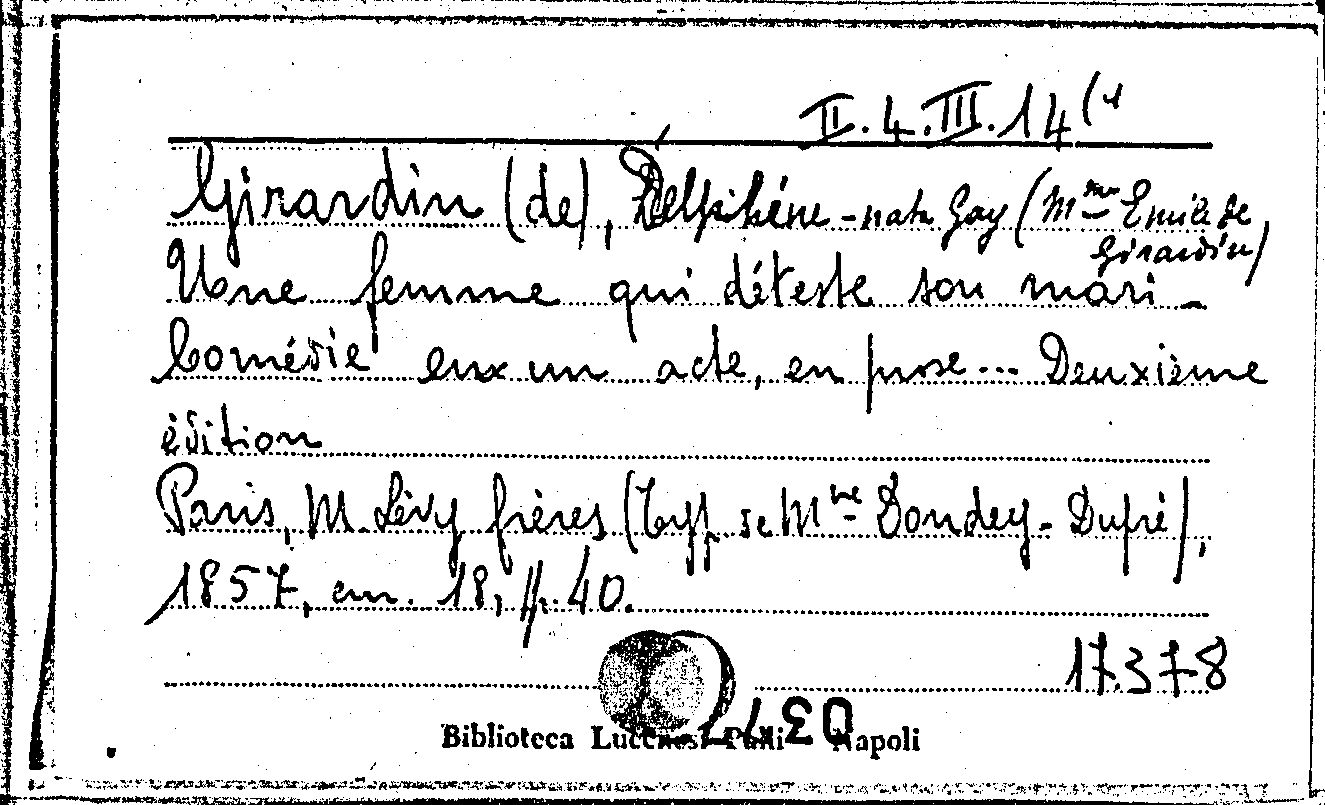 II.4.III.14(4
Girardin (de), Delphine - nata Gay (Mme Emile de
Girardin)
Une femme qui déteste son mari -
Comédie en un acte, en prose... Deuxième
édition
Paris, M. Lévy frères (Typ. de Mme Dondey-Dupré),
1857, in. 18, p. 40.
17.378
Biblioteca Lucchesi Palli Napoli